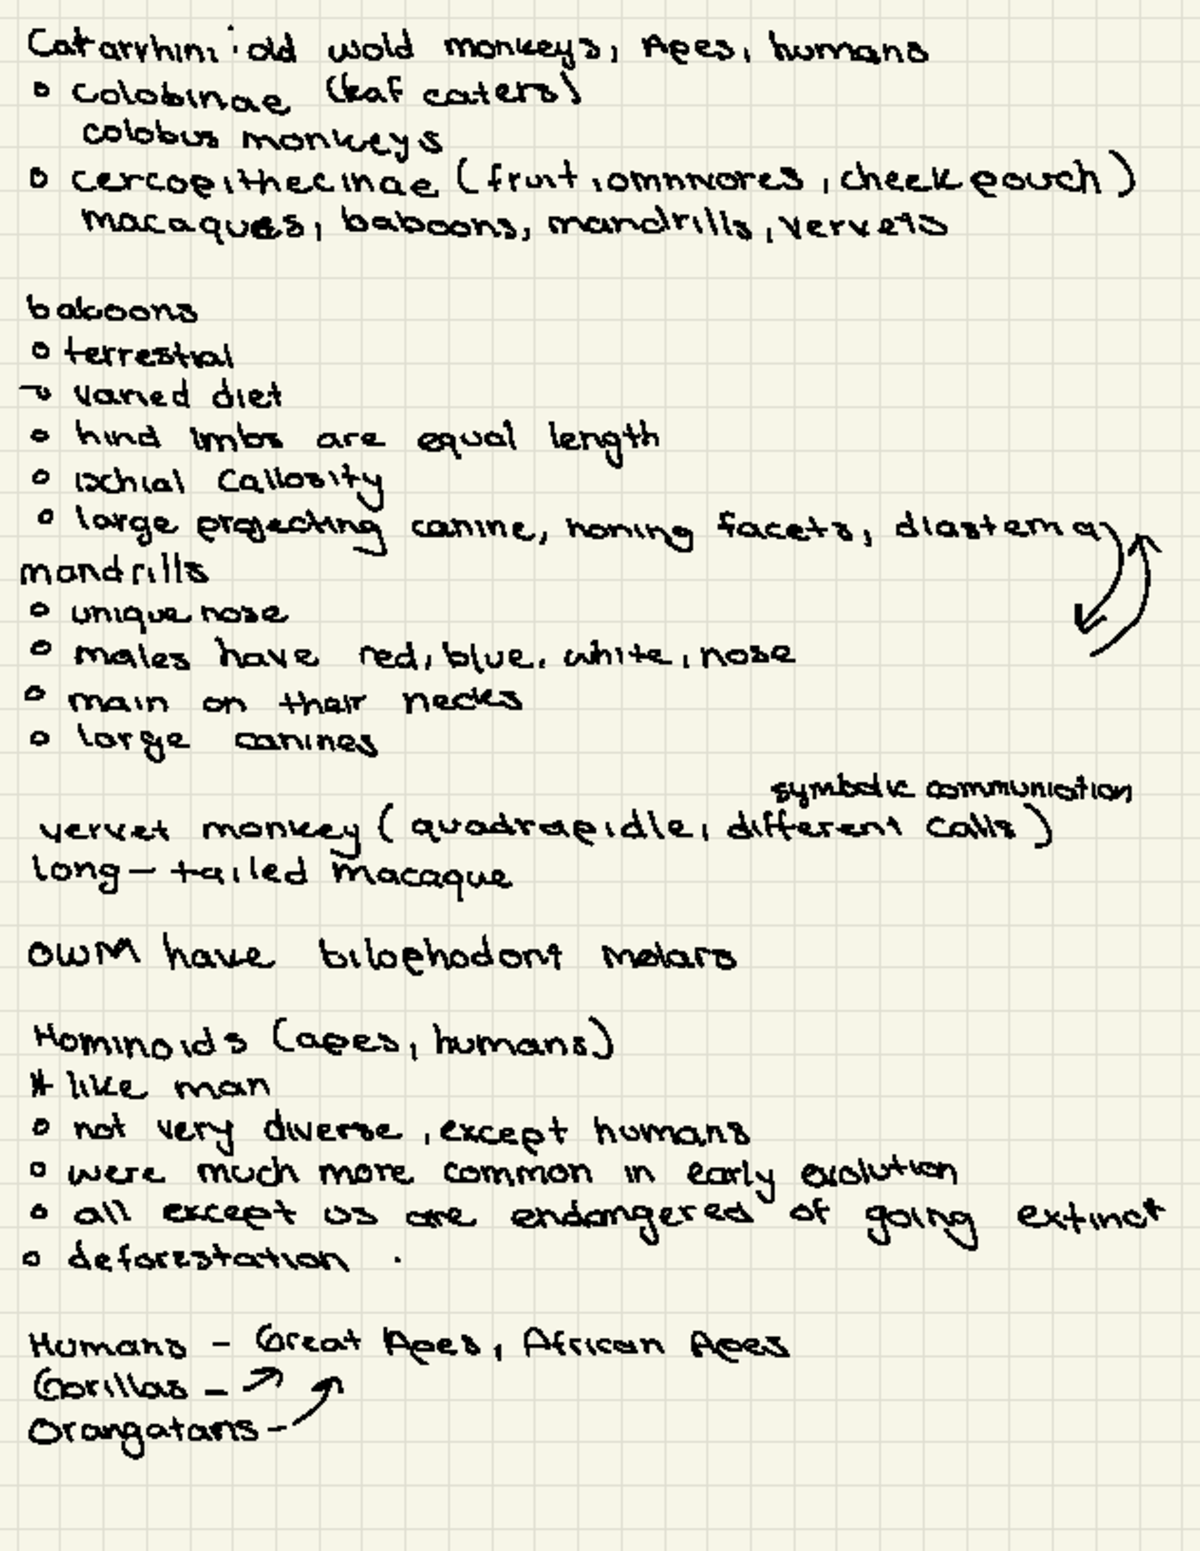 Catarrhini: old wold monkeys, Apes, humans
• colobinae (leaf eaters)
colobus monkeys
• cercopithecinae (fruit, omnivores, cheek pouch)
macaques, baboons, mandrills, vervets
baboons
• terrestial
→ varied diet
• hind limbs are equal length
• ischial callosity
• large projecting canine, honing facets, diastema
mandrills
• unique nose
• males have red, blue, white, nose
• main on their necks
• large canines
symbolic communiction
vervet monkey (quadrapidle, different calls)
long-tailed macaque
OWM have bilophodont molars
Hominoids (apes, humans)
* like man
• not very diverse, except humans
• were much more common in early evolution
• all except us are endangered of going extinct
• deforestation .
Humans - Great Apes, African Apes
Gorillas - →
Orangatans - →